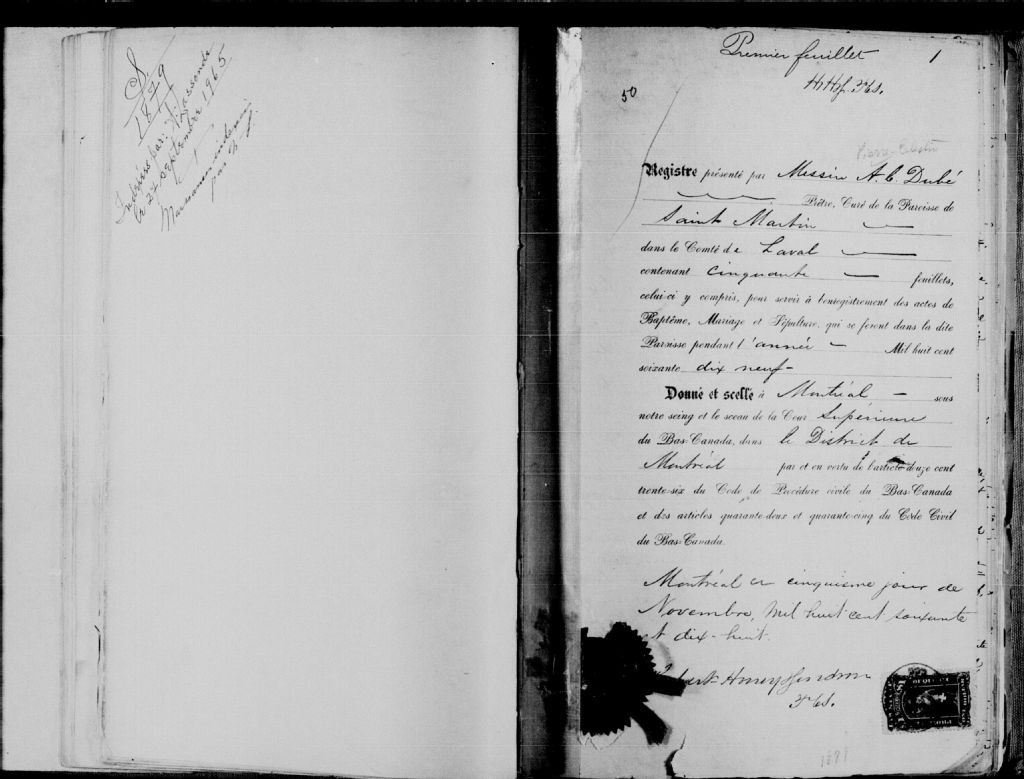 S.
1879
27 septembre 1965
par
Premier feuillet 1
50
Registre présenté par Messire A. C. Dubé
Prêtre, Curé de la Paroisse de
Saint Martin
dans le Comté de Laval
contenant Cinquante feuillets,
celui-ci y compris, pour servir à l'enregistrement des actes de
Baptême, Mariage et Sépulture, qui se feront dans la dite
Paroisse pendant l'année Mil huit cent
soixante dix neuf
Donné et scellé à Montréal sous
notre seing et le sceau de la Cour Supérieure
du Bas-Canada, dans le District de
Montréal par et en vertu de l'article douze cent
trente-six du Code de Procédure civile du Bas-Canada
et des articles quarante-deux et quarante-cinq du Code Civil
du Bas-Canada.
Montréal ce cinquième jour de
Novembre, Mil huit cent soixante
et dix-huit.
1879